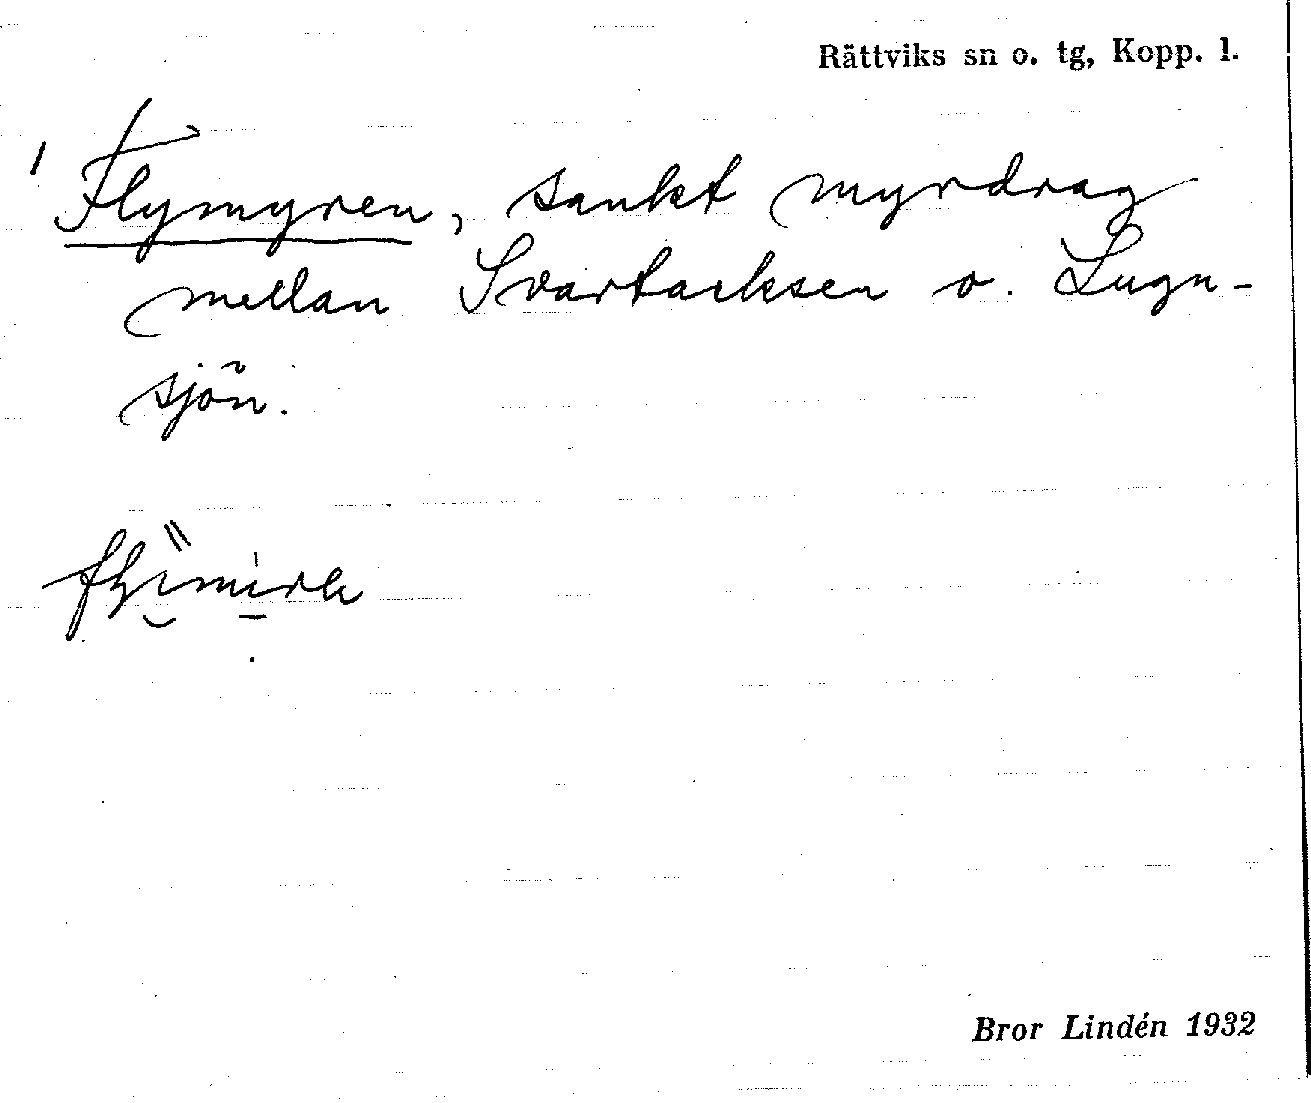 Rättviks sn o. tg, Kopp. l.
Flymyren, sankt myrdrag
mellan Svartacksen o. Lugn-
sjön.
Bror Lindén 1932